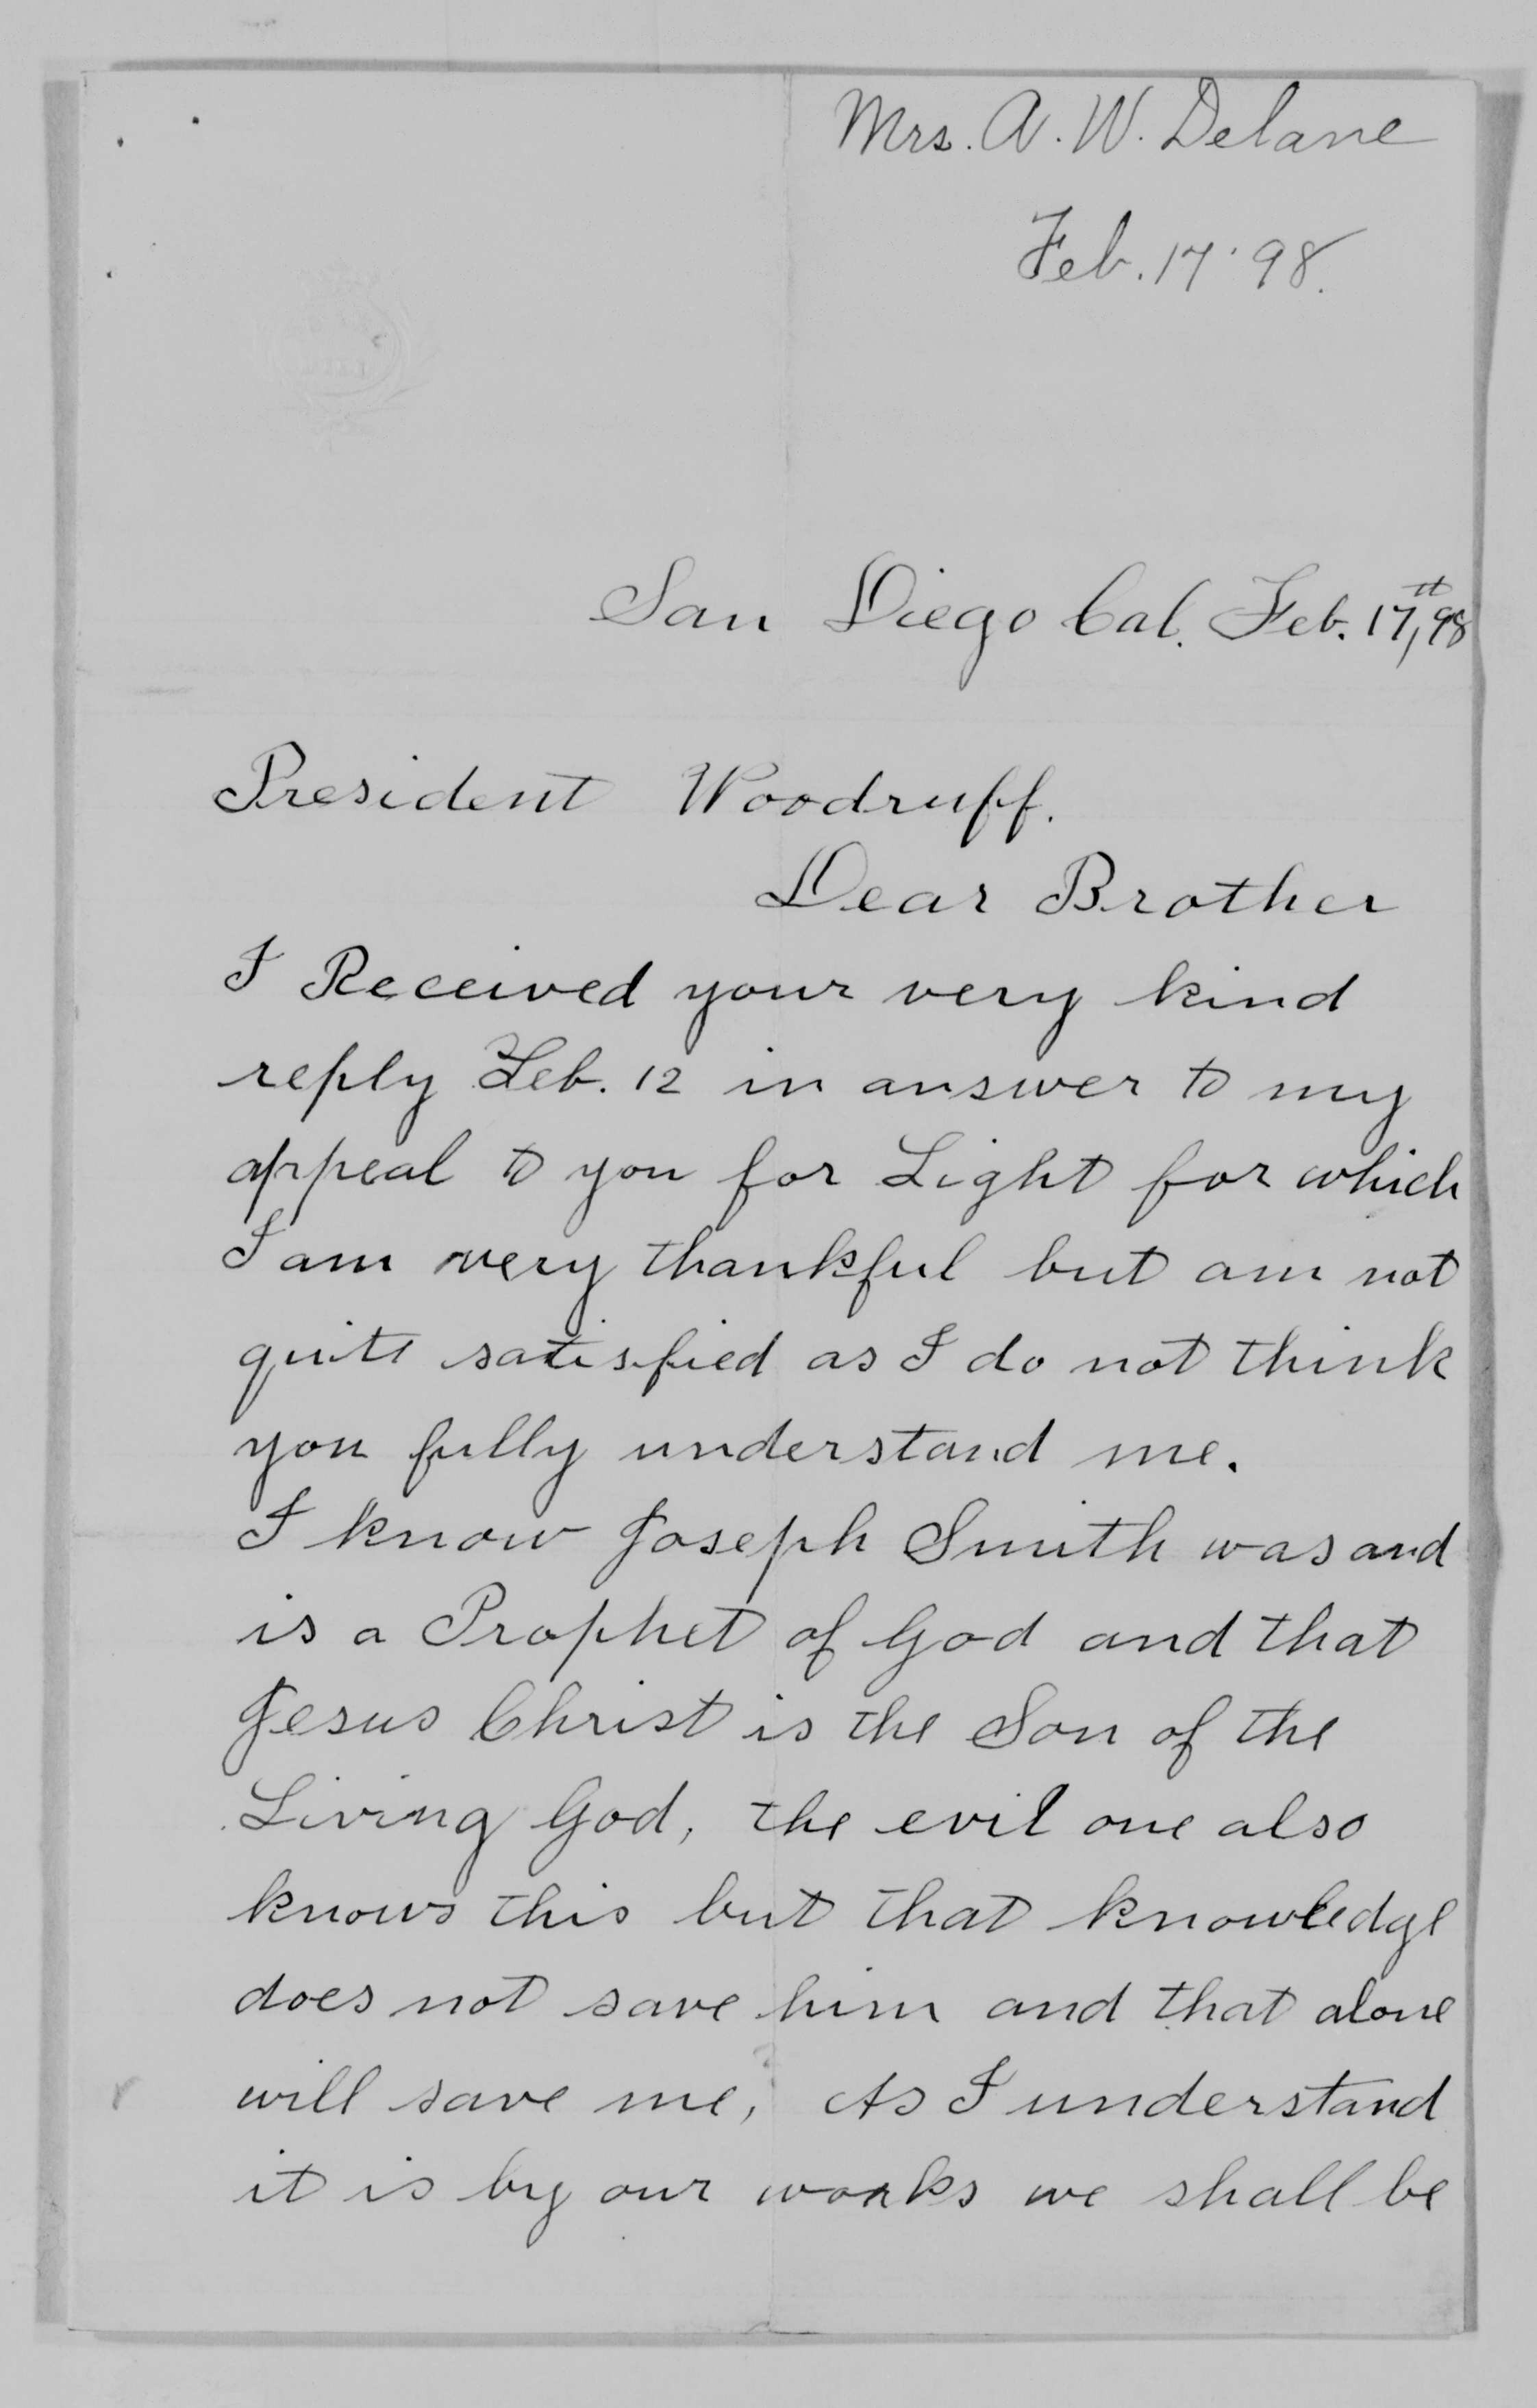 Mrs. A. W. Delane
Feb. 17 '98.
San Diego Cal. Feb. 17th, 98
President Woodruff.
Dear Brother
I Received your very kind
reply Feb. 12 in answer to my
appeal to you for Light for which
I am very thankful but am not
quite satisfied as I do not think
you fully understand me.
I know Joseph Smith was and
is a Prophet of God and that
Jesus Christ is the Son of the
Living God, the evil one also
knows this but that knowledge
does not save him and that alone
will save me, As I understand
it is by our works we shall be